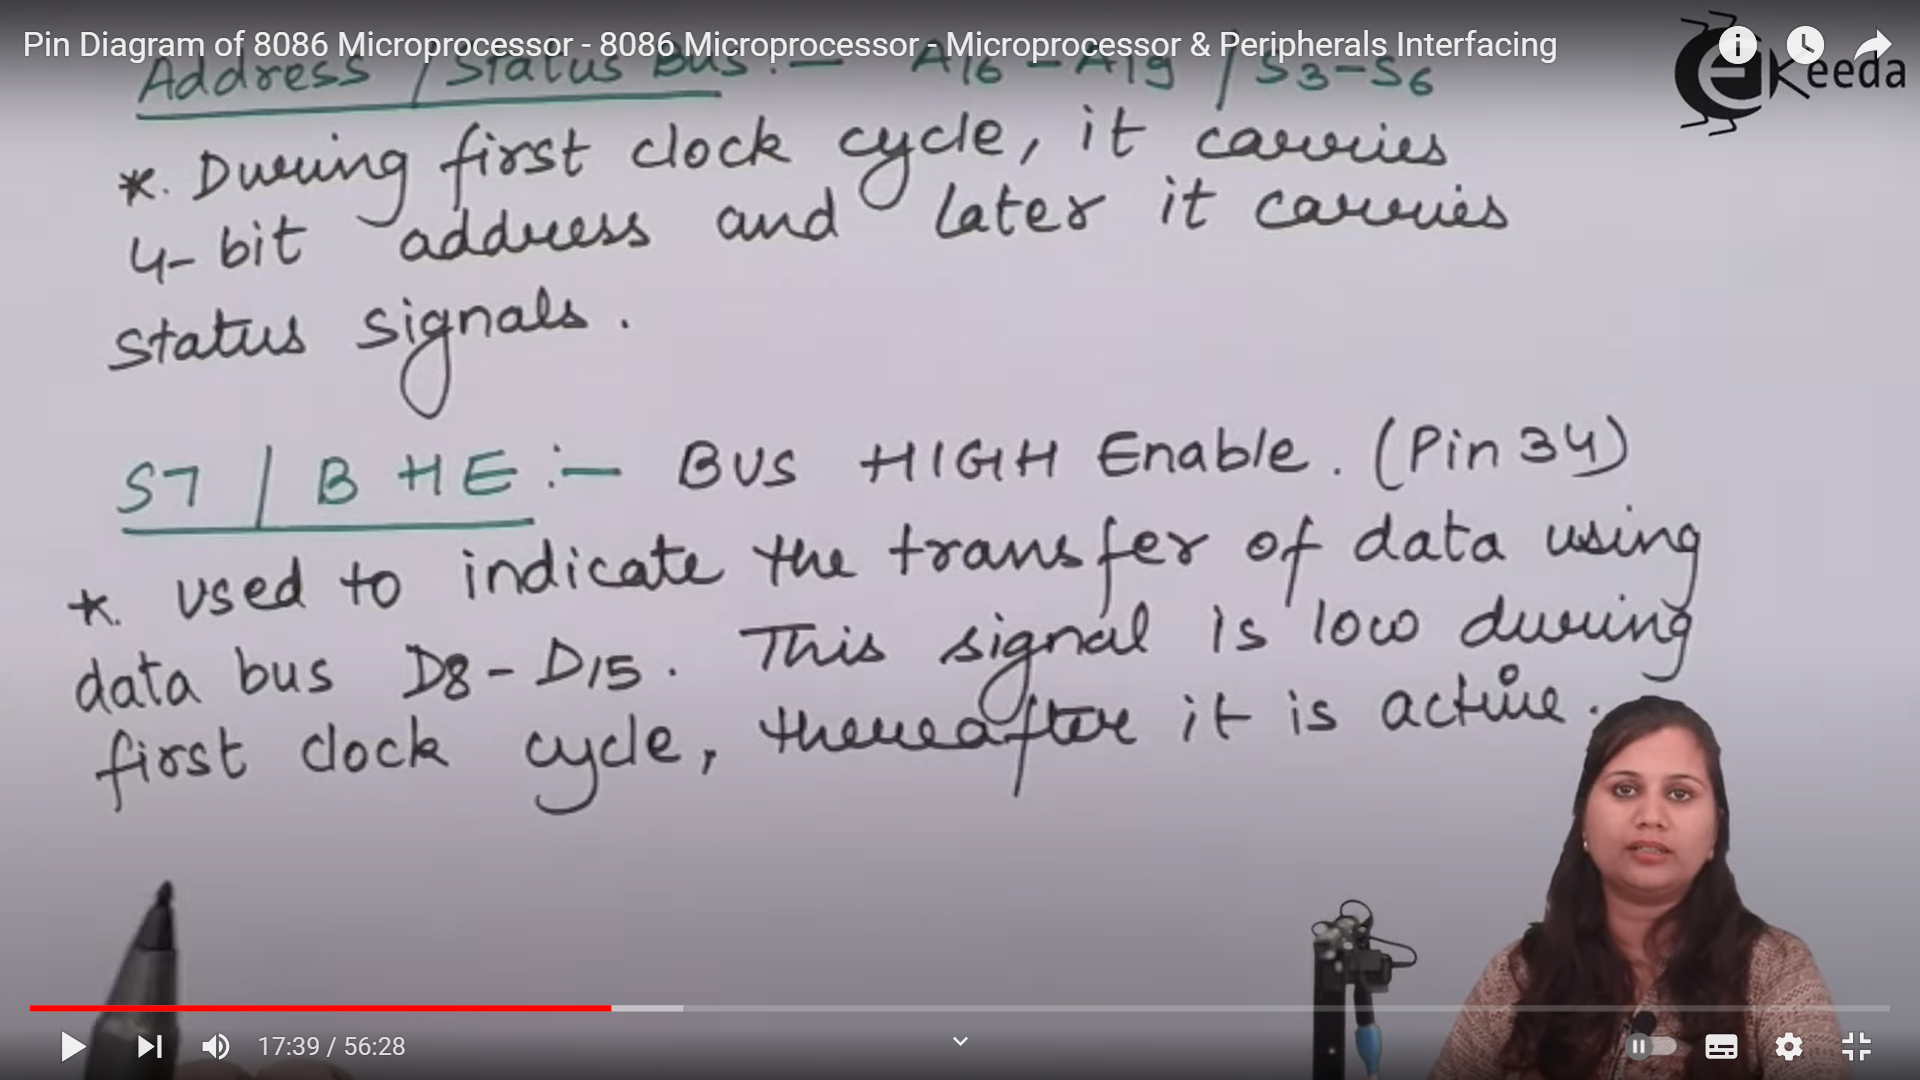 Pin Diagram of 8086 Microprocessor - 8086 Microprocessor - Microprocessor & Peripherals Interfacing
Address / Status Bus :- A16 - A19 / S3-S6
eKeeda
*. During first clock cycle, it carries
4-bit address and later it carries
status signals.
S7 / BHE :- BUS HIGH Enable. (Pin 34)
*. used to indicate the transfer of data using
data bus D8-D15. This signal is low during
first clock cycle, thereafter it is active.
17:39 / 56:28